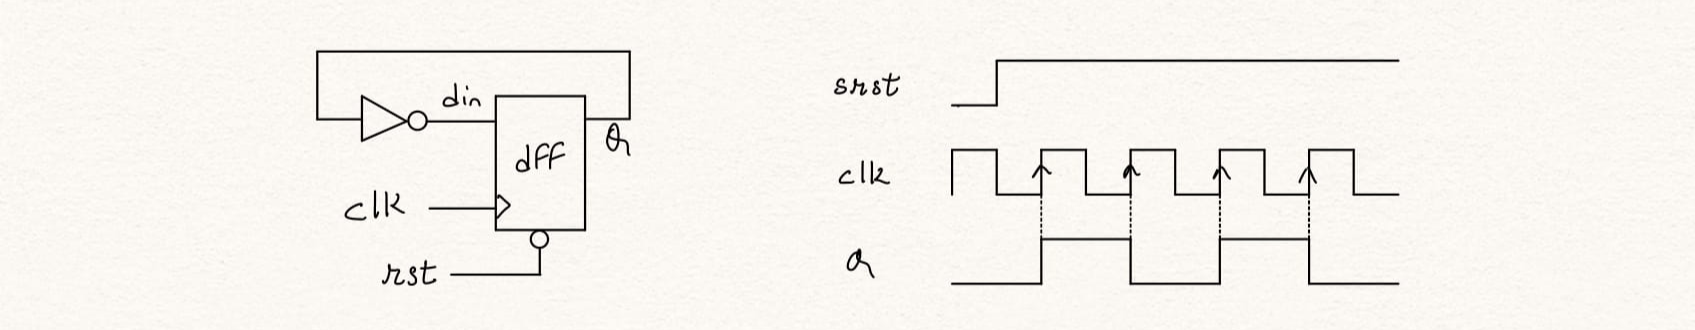 din
dff
Q
clk
rst
srst
clk
Q